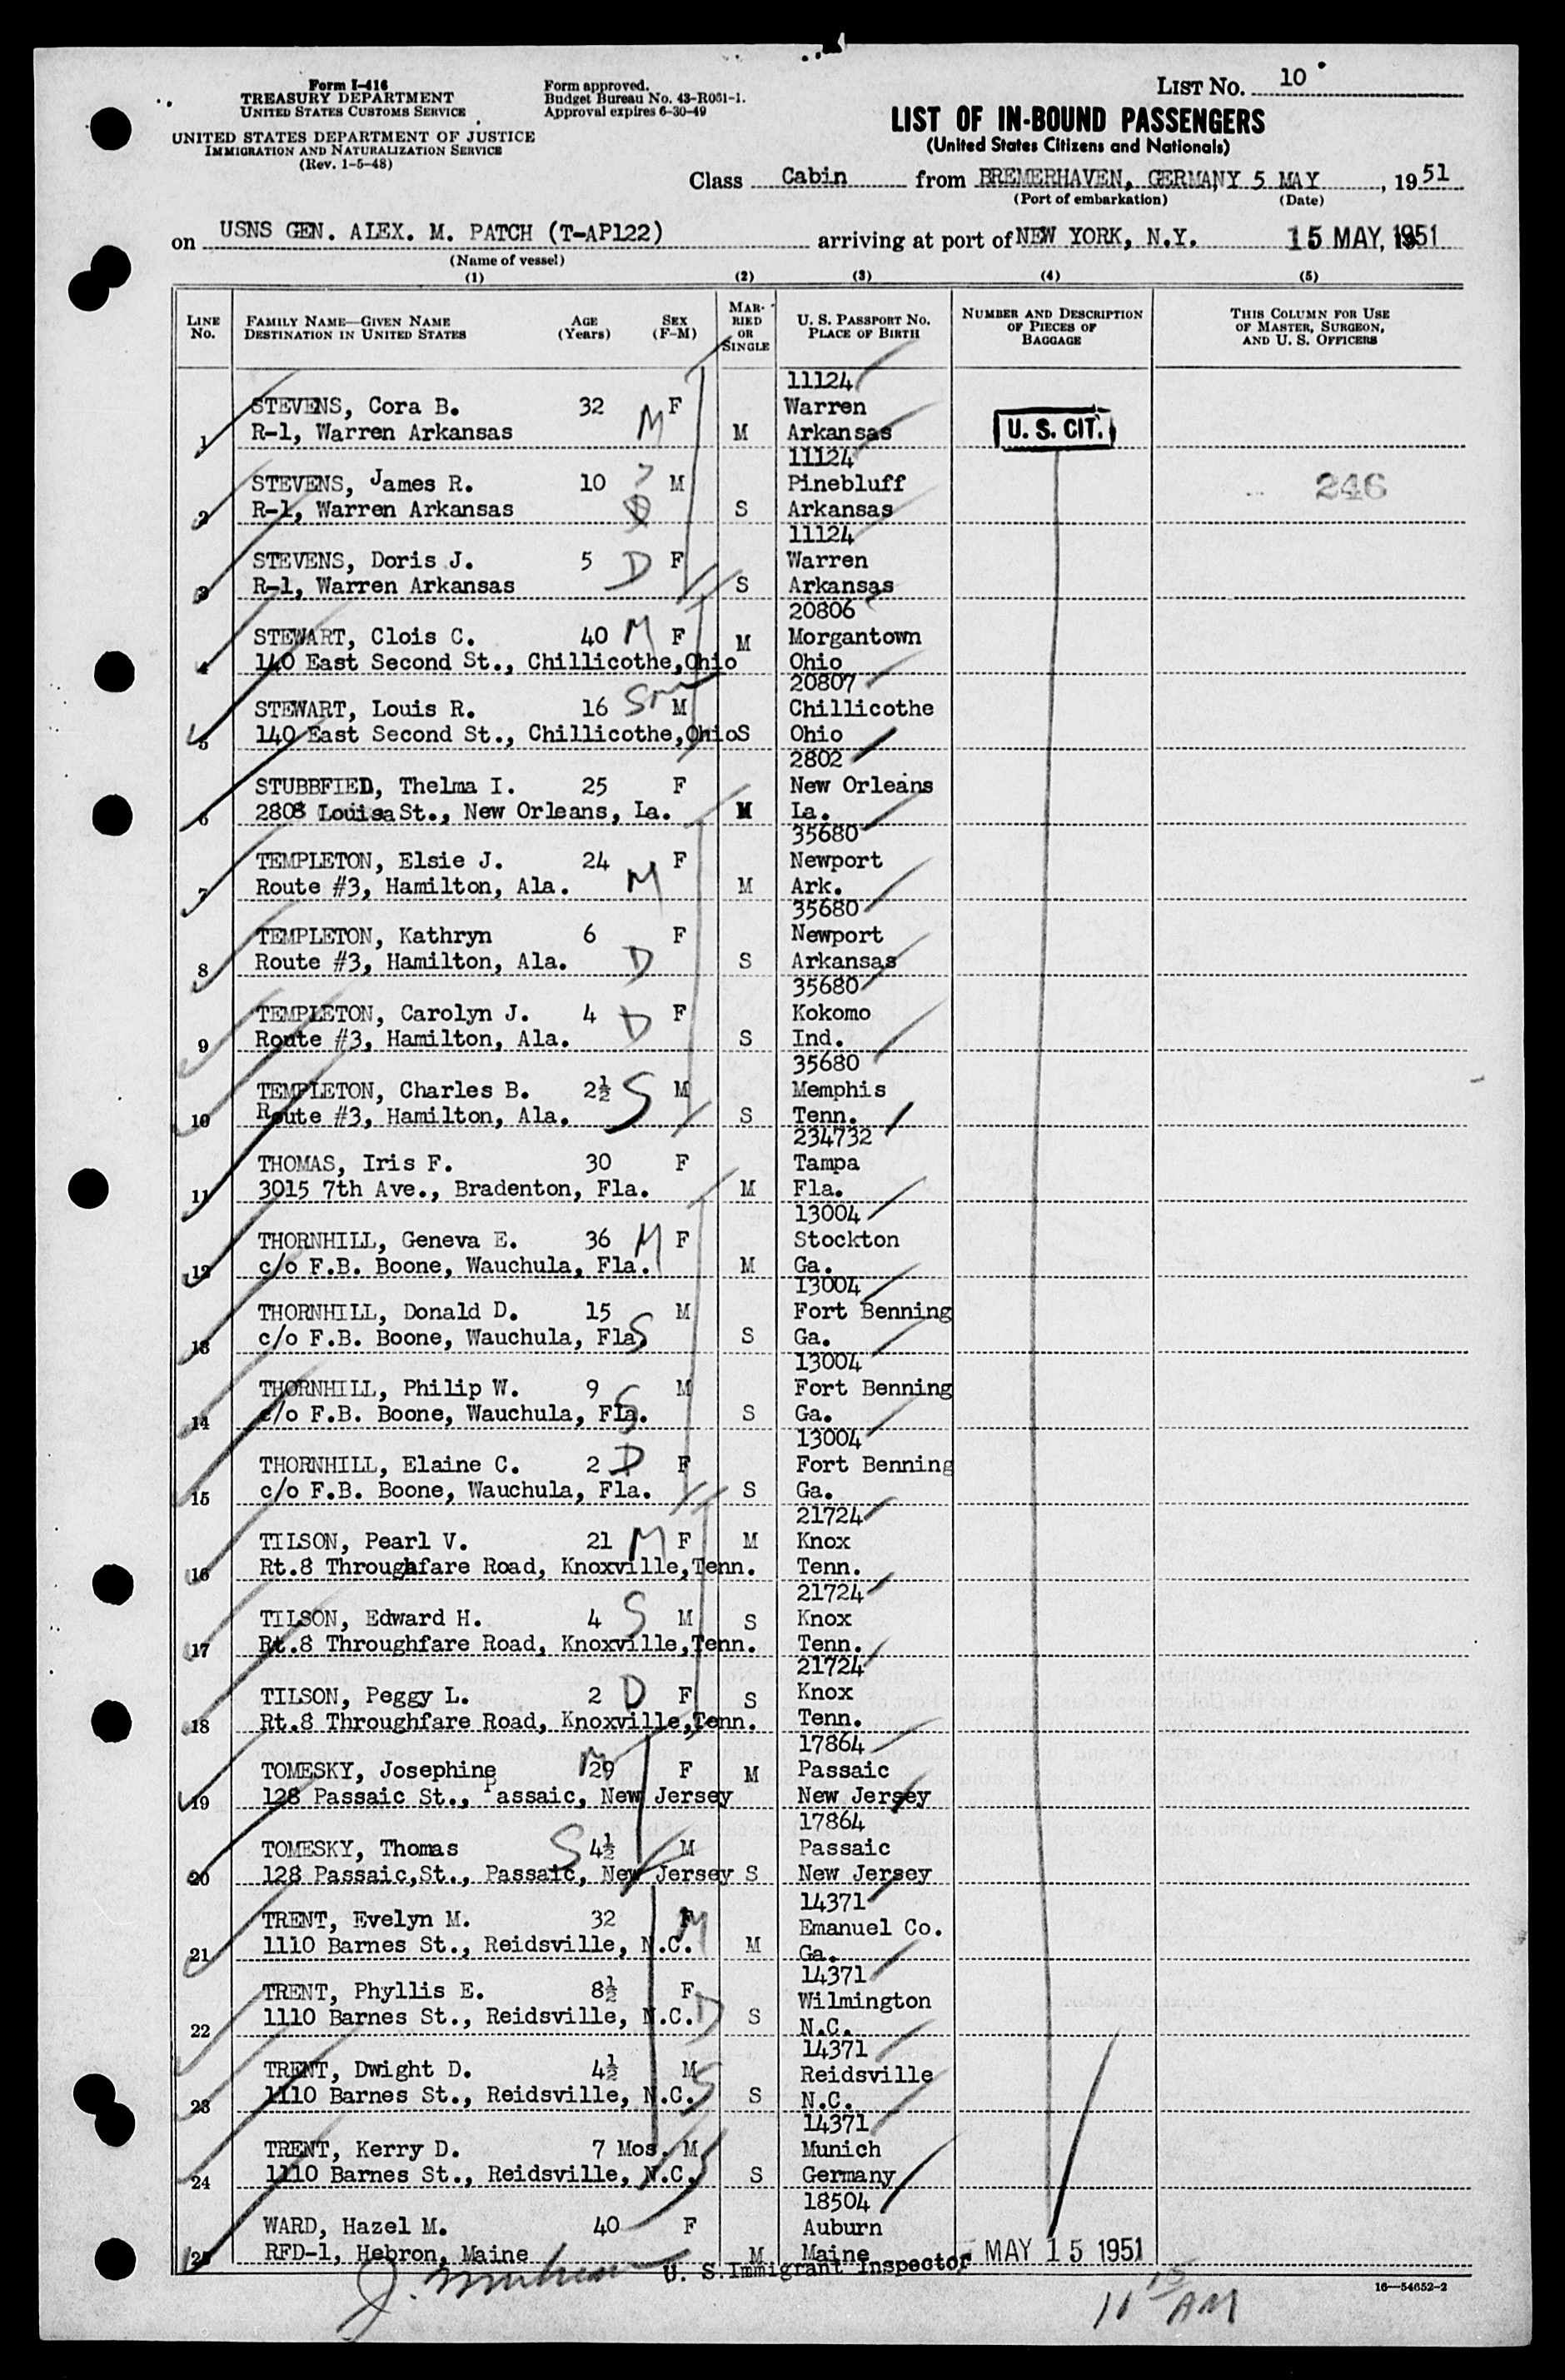 Form I-416
TREASURY DEPARTMENT
UNITED STATES CUSTOMS SERVICE
UNITED STATES DEPARTMENT OF JUSTICE
IMMIGRATION AND NATURALIZATION SERVICE
(Rev. 1-5-48)
Form approved.
Budget Bureau No. 43-R031-1.
Approval expires 6-30-49
LIST NO. 10
LIST OF IN-BOUND PASSENGERS
(United States Citizens and Nationals)
Class Cabin from BREMERHAVEN, GERMANY 5 MAY, 1951
(Port of embarkation) (Date)
on USNS GEN. ALEX. M. PATCH (T-AP122) arriving at port of NEW YORK, N.Y. 15 MAY, 1951
(Name of vessel)
(1) (2) (3) (4) (5)
LINE NO. FAMILY NAME—GIVEN NAME DESTINATION IN UNITED STATES AGE (Years) SEX (F-M) MARRIED OR SINGLE U. S. PASSPORT NO. PLACE OF BIRTH NUMBER AND DESCRIPTION OF PIECES OF BAGGAGE THIS COLUMN FOR USE OF MASTER, SURGEON, AND U. S. OFFICERS
11124
STEVENS, Cora B. 32 M F Warren
1 R-1, Warren Arkansas M Arkansas U. S. CIT.
11124
STEVENS, James R. 10 M Pinebluff 246
2 R-1, Warren Arkansas S Arkansas
11124
STEVENS, Doris J. 5 D F Warren
3 R-1, Warren Arkansas S Arkansas
20806
STEWART, Clois C. 40 M F M Morgantown
4 140 East Second St., Chillicothe,Ohio Ohio
20807
STEWART, Louis R. 16 Son M Chillicothe
5 140 East Second St., Chillicothe,Ohio S Ohio
2802
STUBBFIED, Thelma I. 25 F New Orleans
6 2808 Louisa St., New Orleans, La. M La.
35680
TEMPLETON, Elsie J. 24 M F Newport
7 Route #3, Hamilton, Ala. M Ark.
35680
TEMPLETON, Kathryn 6 F Newport
8 Route #3, Hamilton, Ala. D S Arkansas
35680
TEMPLETON, Carolyn J. 4 D F Kokomo
9 Route #3, Hamilton, Ala. S Ind.
35680
TEMPLETON, Charles B. 2½ S M Memphis
10 Route #3, Hamilton, Ala. S Tenn.
234732
THOMAS, Iris F. 30 F Tampa
11 3015 7th Ave., Bradenton, Fla. M Fla.
13004
THORNHILL, Geneva E. 36 M F Stockton
12 c/o F.B. Boone, Wauchula, Fla. M Ga.
13004
THORNHILL, Donald D. 15 M Fort Benning
13 c/o F.B. Boone, Wauchula, Fla. S S Ga.
13004
THORNHILL, Philip W. 9 S M Fort Benning
14 c/o F.B. Boone, Wauchula, Fla. S Ga.
13004
THORNHILL, Elaine C. 2 D F Fort Benning
15 c/o F.B. Boone, Wauchula, Fla. S Ga.
21724
TILSON, Pearl V. 21 M F M Knox
16 Rt.8 Throughfare Road, Knoxville,Tenn. Tenn.
21724
TILSON, Edward H. 4 S M S Knox
17 Rt.8 Throughfare Road, Knoxville,Tenn. Tenn.
21724
TILSON, Peggy L. 2 D F S Knox
18 Rt.8 Throughfare Road, Knoxville,Tenn. Tenn.
17864
TOMESKY, Josephine M 29 F M Passaic
19 128 Passaic St., Passaic, New Jersey New Jersey
17864
TOMESKY, Thomas S 4½ M Passaic
20 128 Passaic,St., Passaic, New Jersey S New Jersey
14371
TRENT, Evelyn M. 32 F M Emanuel Co.
21 1110 Barnes St., Reidsville, N.C. M Ga.
14371
TRENT, Phyllis E. 8½ F Wilmington
22 1110 Barnes St., Reidsville, N.C. D S N.C.
14371
TRENT, Dwight D. 4½ M Reidsville
23 1110 Barnes St., Reidsville, N.C. S S N.C.
14371
TRENT, Kerry D. 7 Mos. M Munich
24 1110 Barnes St., Reidsville, N.C. S S Germany
18504
WARD, Hazel M. 40 F Auburn
25 RFD-1, Hebron, Maine M Maine MAY 15 1951
J. U. S. Immigrant Inspector
16—54652-2
11 15 AM